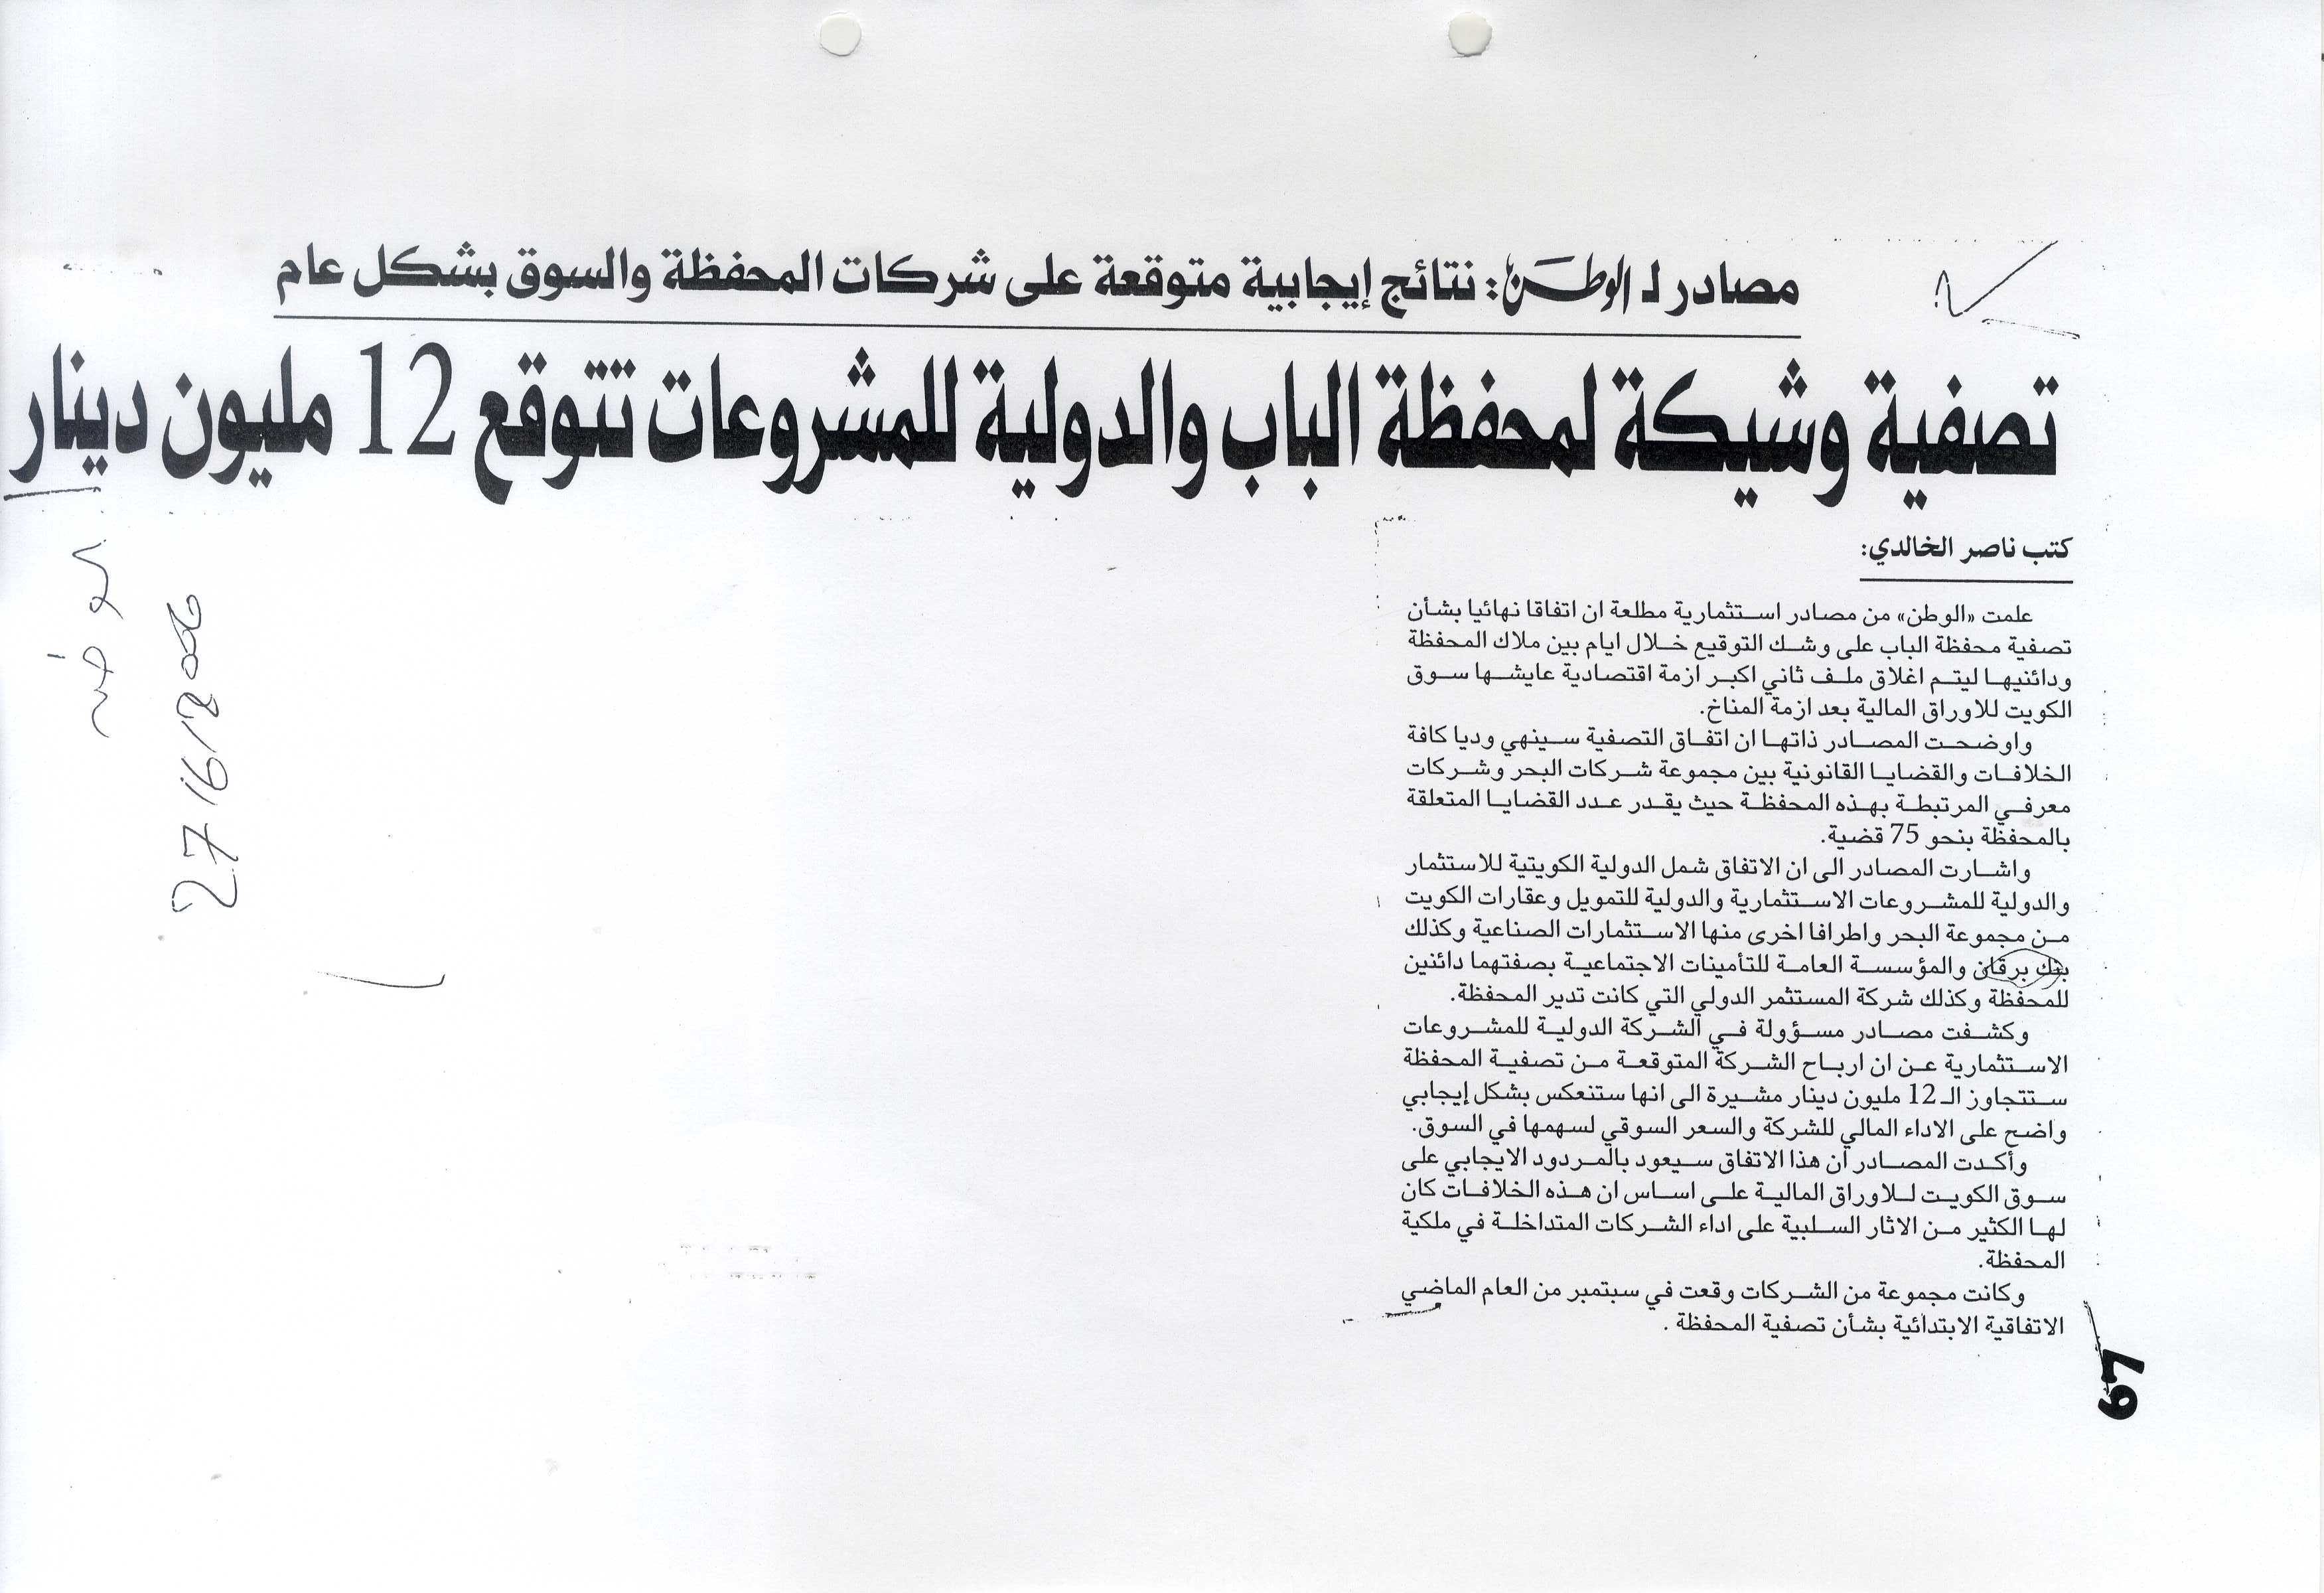 مصادر لـ الوطن: نتائج إيجابية متوقعة على شركات المحفظة والسوق بشكل عام
تصفية وشيكة لمحفظة الباب والدولية للمشروعات تتوقع 12 مليون دينار
كتب ناصر الخالدي:
علمت «الوطن» من مصادر استثمارية مطلعة ان اتفاقا نهائيا بشأن
تصفية محفظة الباب على وشك التوقيع خلال ايام بين ملاك المحفظة
ودائنيها ليتم اغلاق ملف ثاني اكبر ازمة اقتصادية عايشها سوق
الكويت للاوراق المالية بعد ازمة المناخ.
واوضحت المصادر ذاتها ان اتفاق التصفية سينهي وديا كافة
الخلافات والقضايا القانونية بين مجموعة شركات البحر وشركات
معرفي المرتبطة بهذه المحفظة حيث يقدر عدد القضايا المتعلقة
بالمحفظة بنحو 75 قضية.
واشارت المصادر الى ان الاتفاق شمل الدولية الكويتية للاستثمار
والدولية للمشروعات الاستثمارية والدولية للتمويل وعقارات الكويت
من مجموعة البحر واطرافا اخرى منها الاستثمارات الصناعية وكذلك
بنك برقان والمؤسسة العامة للتأمينات الاجتماعية بصفتهما دائنين
للمحفظة وكذلك شركة المستثمر الدولي التي كانت تدير المحفظة.
وكشفت مصادر مسؤولة في الشركة الدولية للمشروعات
الاستثمارية عن ان ارباح الشركة المتوقعة من تصفية المحفظة
ستتجاوز الـ 12 مليون دينار مشيرة الى انها ستنعكس بشكل إيجابي
واضح على الاداء المالي للشركة والسعر السوقي لسهمها في السوق.
وأكدت المصادر ان هذا الاتفاق سيعود بالمردود الايجابي على
سوق الكويت للاوراق المالية على اساس ان هذه الخلافات كان
لها الكثير من الاثار السلبية على اداء الشركات المتداخلة في ملكية
المحفظة.
وكانت مجموعة من الشركات وقعت في سبتمبر من العام الماضي
الاتفاقية الابتدائية بشأن تصفية المحفظة .
27/6/2006
67